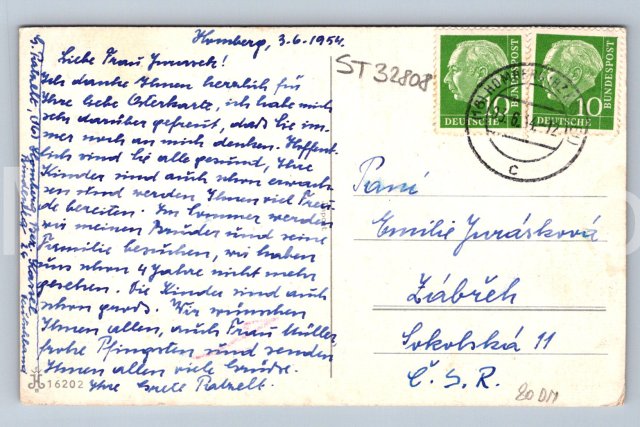 Homberg, 3.6.1954.
Liebe Frau Jurasek!
Ich danke Ihnen herzlich für
Ihre liebe Osterkarte, ich habe mich
sehr darüber gefreut, daß Sie im-
mer noch an mich denken. Hoffent-
lich sind Sie alle gesund, Ihre
Kinder sind auch schon erwach-
sen und werden Ihnen viel Freu-
de bereiten. Im Sommer werden
wir meinen Bruder und seine
Familie besuchen, wir haben
uns schon 4 Jahre nicht mehr
gesehen. Die Kinder sind auch
schon groß. Wir wünschen
Ihnen allen, auch Frau Müller,
frohe Pfingsten und senden
Ihnen allen viele Grüße.
Ihre Grete Patzelt.
G. Patzelt, (16) Homberg, Bez. Kassel
16202
ST 32808
10
DEUTSCHE
BUNDESPOST
10
DEUTSCHE
BUNDESPOST
HOMBERG
c
Paní
Emilie Jurásková
Zábřeh
Sokolská 11
Č.S.R.
20 DM